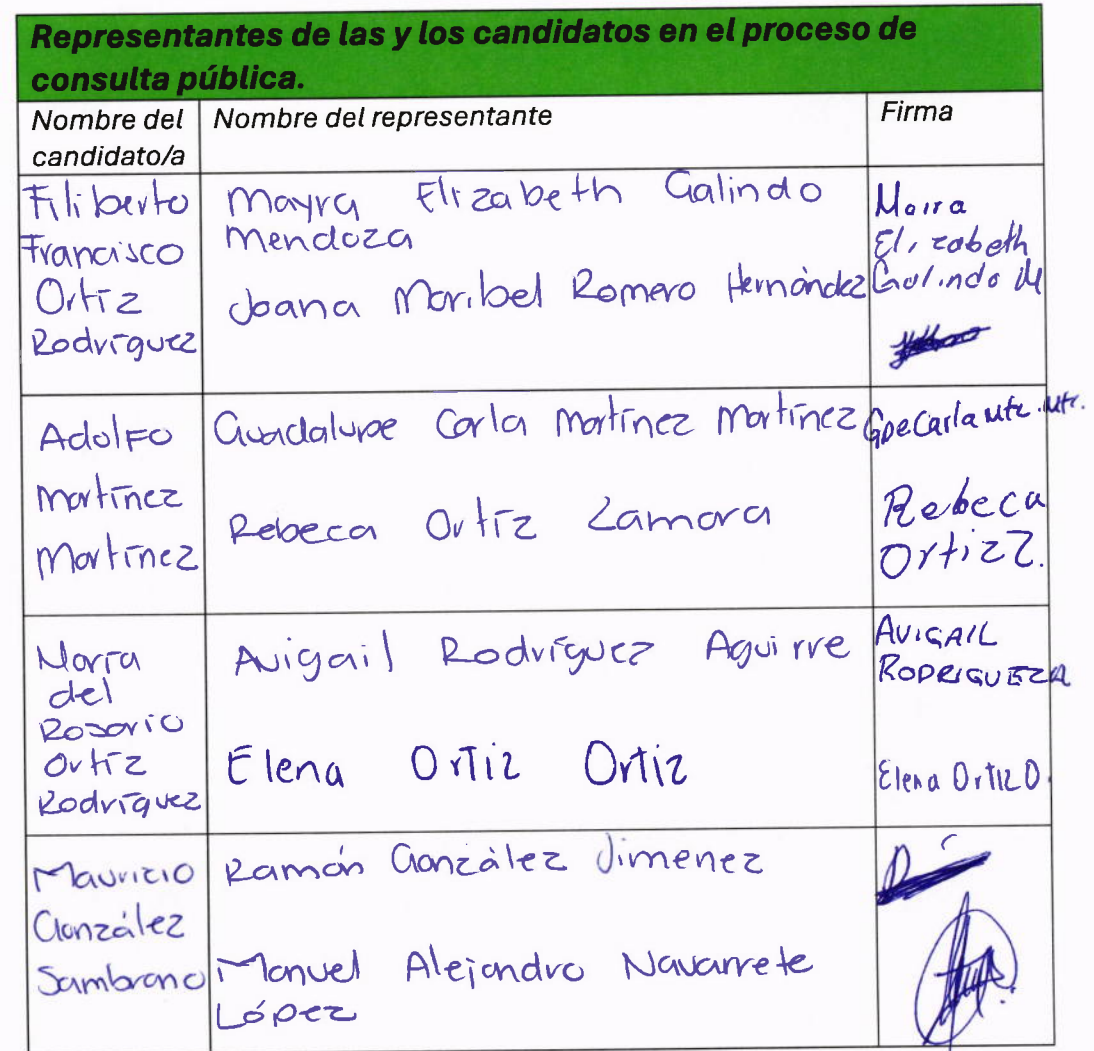 Representantes de las y los candidatos en el proceso de
consulta pública.
Nombre del
candidato/a
Nombre del representante
Firma
Filiberto
Francisco
Ortíz
Rodríguez
Mayra Elizabeth Galindo
Mendoza
Joana Maribel Romero Hernández
Maira
Elizabeth
Galindo M
Adolfo
Martínez
Martínez
Guadalupe Carla Martínez Martínez
Rebeca Ortíz Zamora
Gpe Carla Mtz. Mtz.
Rebeca
Ortiz Z.
María
del
Rosario
Ortíz
Rodríguez
Avigail Rodríguez Aguirre
Elena Ortiz Ortiz
AVIGAIL
RODRIGUEZ A
Elena Ortiz O.
Mauricio
González
Sambrano
Ramón González Jimenez
Manuel Alejandro Navarrete
López